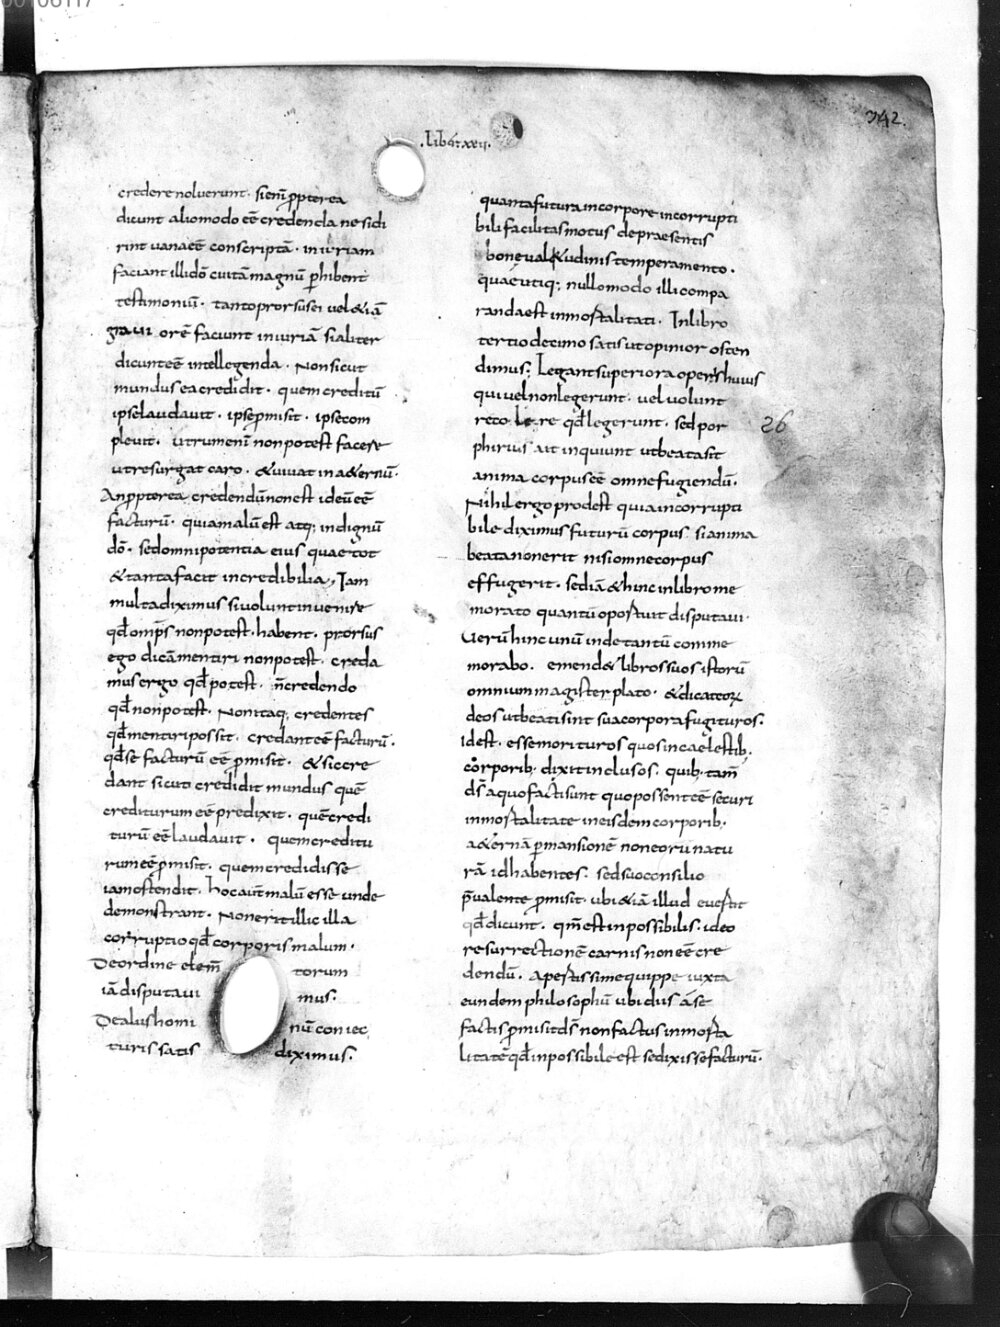 342.
.Liber xxii.
credere noluerunt. si enī ꝓpterea
dicunt alio modo eē credenda ne si di
rint uana eē conscripta. iniuriam
faciant illi dō cui tā magnū ꝑhibent
testimoniū. tanto prorsus ei uel &iā
grauiorē faciunt iniuriā si aliter
dicunt eē intellegenda. Non sicut
mundus ea credidit. quem creditū
ipse laudauit. ipse ꝓmisit. ipse com
pleuit. utrum enī non potest facere
ut resurgat caro. & uiuat in a&ernū.
An ꝓpterea credendū non est id eū eē
facturū. quia malū est atq; indignū
dō. sed omnipotentia eius quae tot
& tanta facit incredibilia, Iam
multa diximus si uolunt inuenire
qđ omps non potest. habent. prorsus
ego dicā mentiri non potest. creda
mus ergo qđ potest. n̄ credendo
qđ non potest. Non itaq; credentes
qđ mentiri possit. credant eē facturū.
qđ se facturū eē ꝓmisit. & sic cre
dant sicut credidit mundus quē
crediturum eē predixit. quē credi
turū eē laudauit. quem creditu
rum eē ꝓmisit. quem credidisse
iam ostendit. hoc autē malū esse unde
demonstrant. Non erit illic illa
corruptio qđ corporis malum.
De ordine elem torum
iā disputaui mus.
De alus homi nū coniec
turis satis diximus.
quanta futura in corpore incorrupti
bili facilitas motus de praesentis
bone ual&udinis temperamento.
quae utiq; nullo modo illi compa
randa est inmortalitati. In libro
tertio decimo satis ut opinor osten
dimus; Legant superiora operis huius
qui uel non legerunt. uel uolunt
reco le re qđ legerunt. sed por
26
phirius ait inquiunt ut beata sit
anima corpus eē omne fugiendū.
Nihil ergo prodest quia incorrupti
bile diximus futurū corpus. si anima
beata non erit nisi omne corpus
effugerit. sed iā & hinc in libro me
morato quantū oportuit disputaui.
Uerū hinc unū inde tantū comme
morabo. emend& libros suos istorū
omnium magister plato. & dicat eoꝝ
deos ut beati sint sua corpora fugituros.
Id est. esse morituros quos in caelestib.
corporib; dixit inclusos. quib; tam̄
dš a quo facti sunt quo possent eē securi
inmortalitate in eisdem corporib;
a&ernā ꝑmansionē non eorū natu
rā id habentes. sed suo consilio
p̄ualente ꝓmisit. ubi &iā illud euertit
qđ dicunt. qm̄ est inpossibilis. ideo
resurrectionē carnis non eē cre
dendū. apertissime quippe iuxta
eundem philosophū ubi diis a se
factis ꝓmisit dš non factus inmorta
litatē qđ inpossibile est se dixisse facturū.